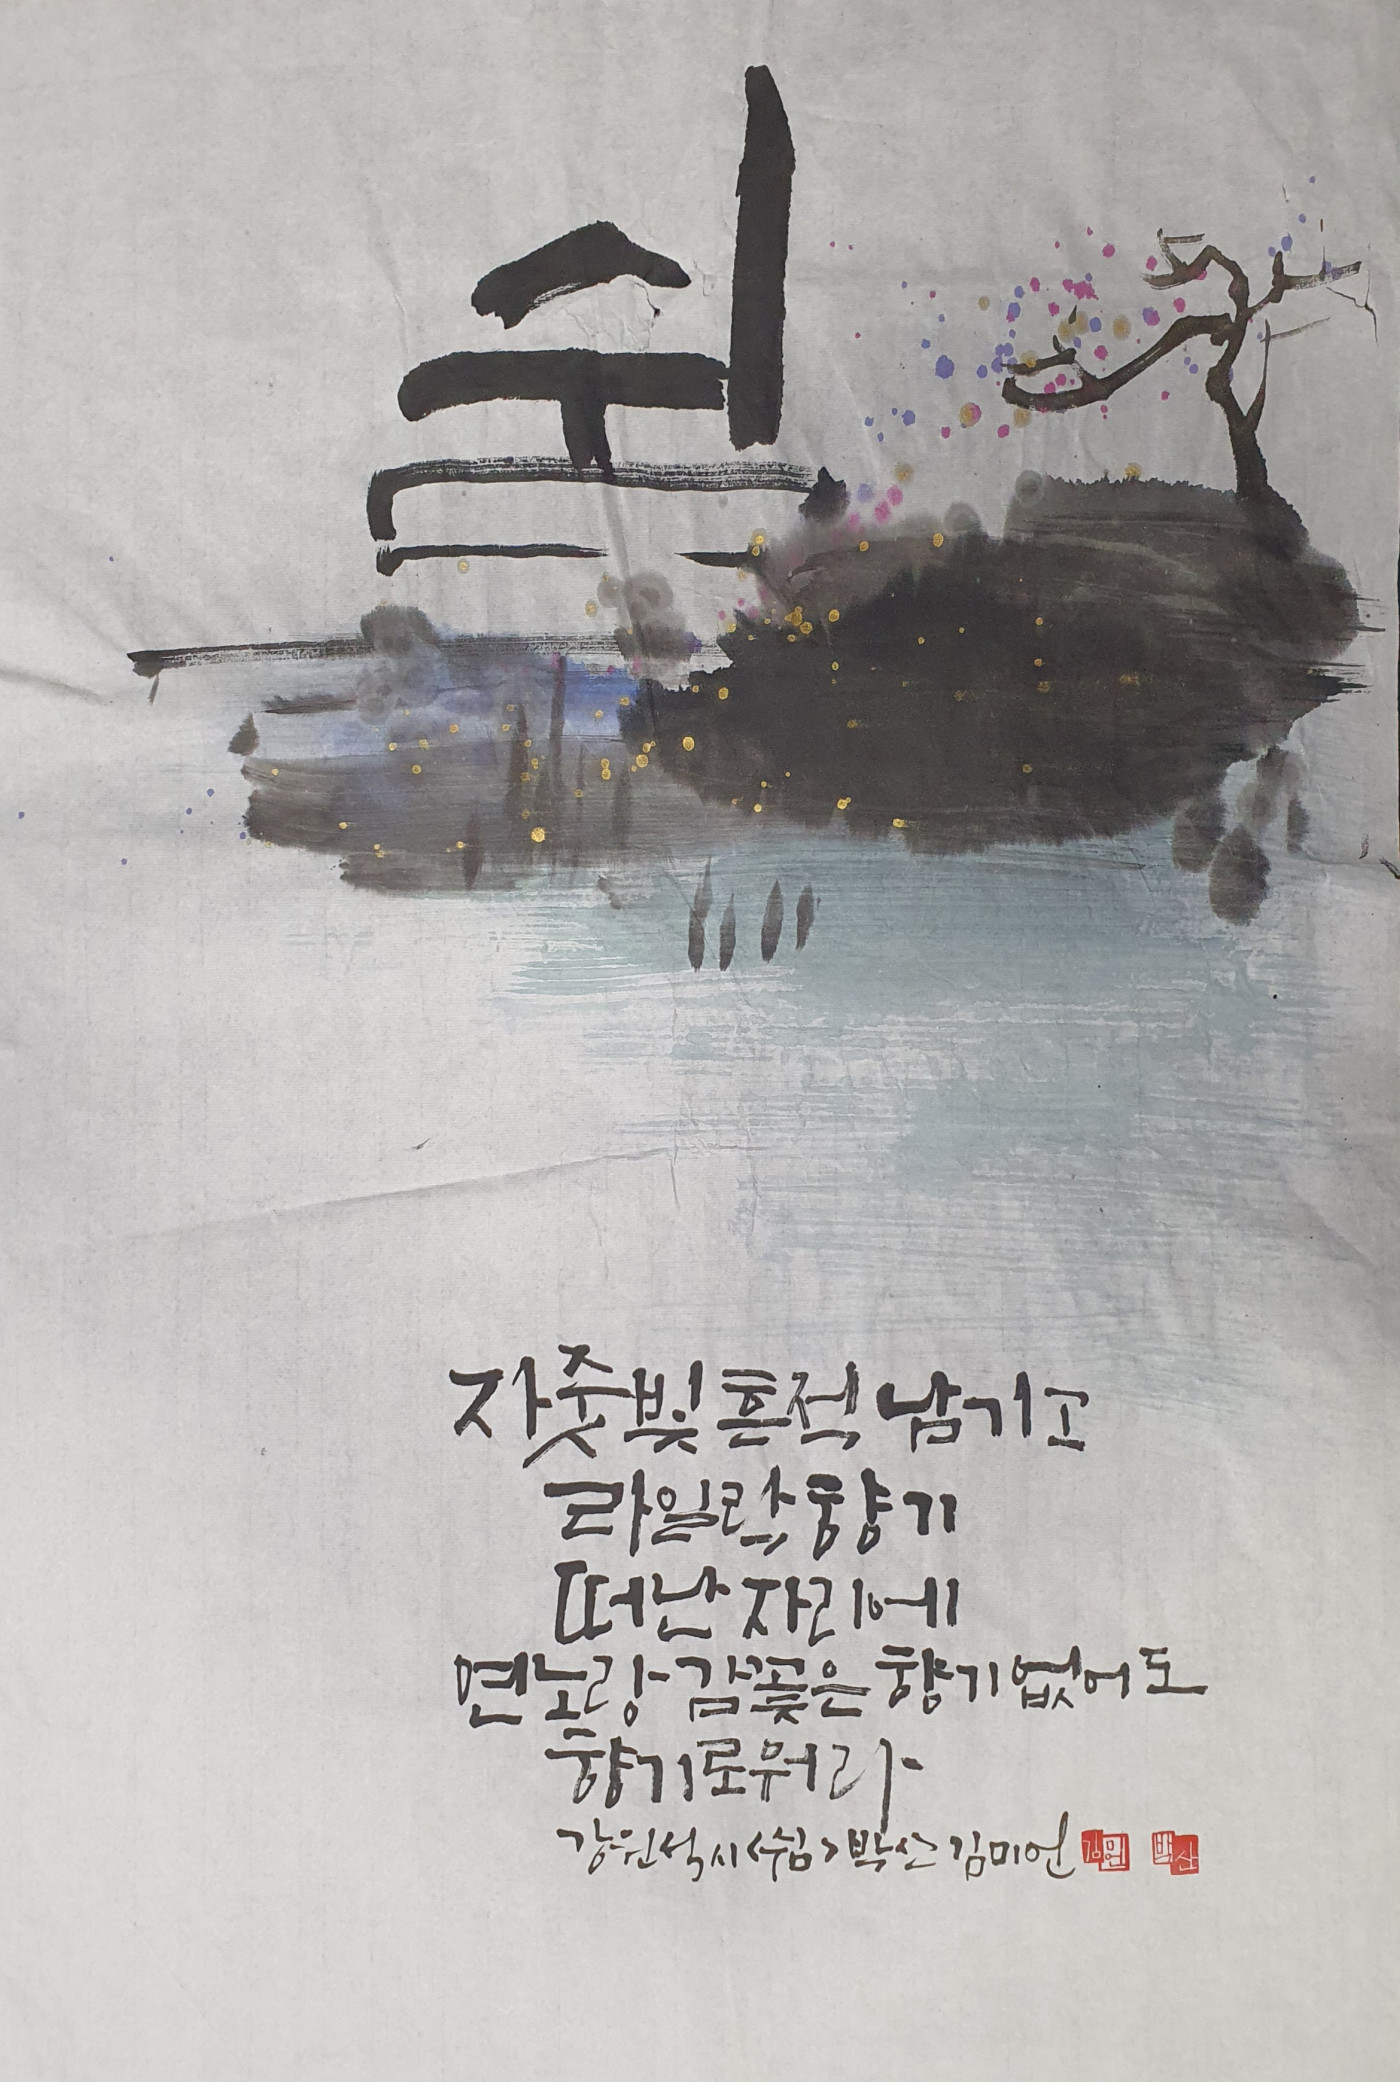 쉼
자줏빛 흔적 남기고
라일락 향기
떠난 자리에
연노랑 감꽃은 향기 없어도
향기로워라
강원석 시 <쉼> 박산 김미언